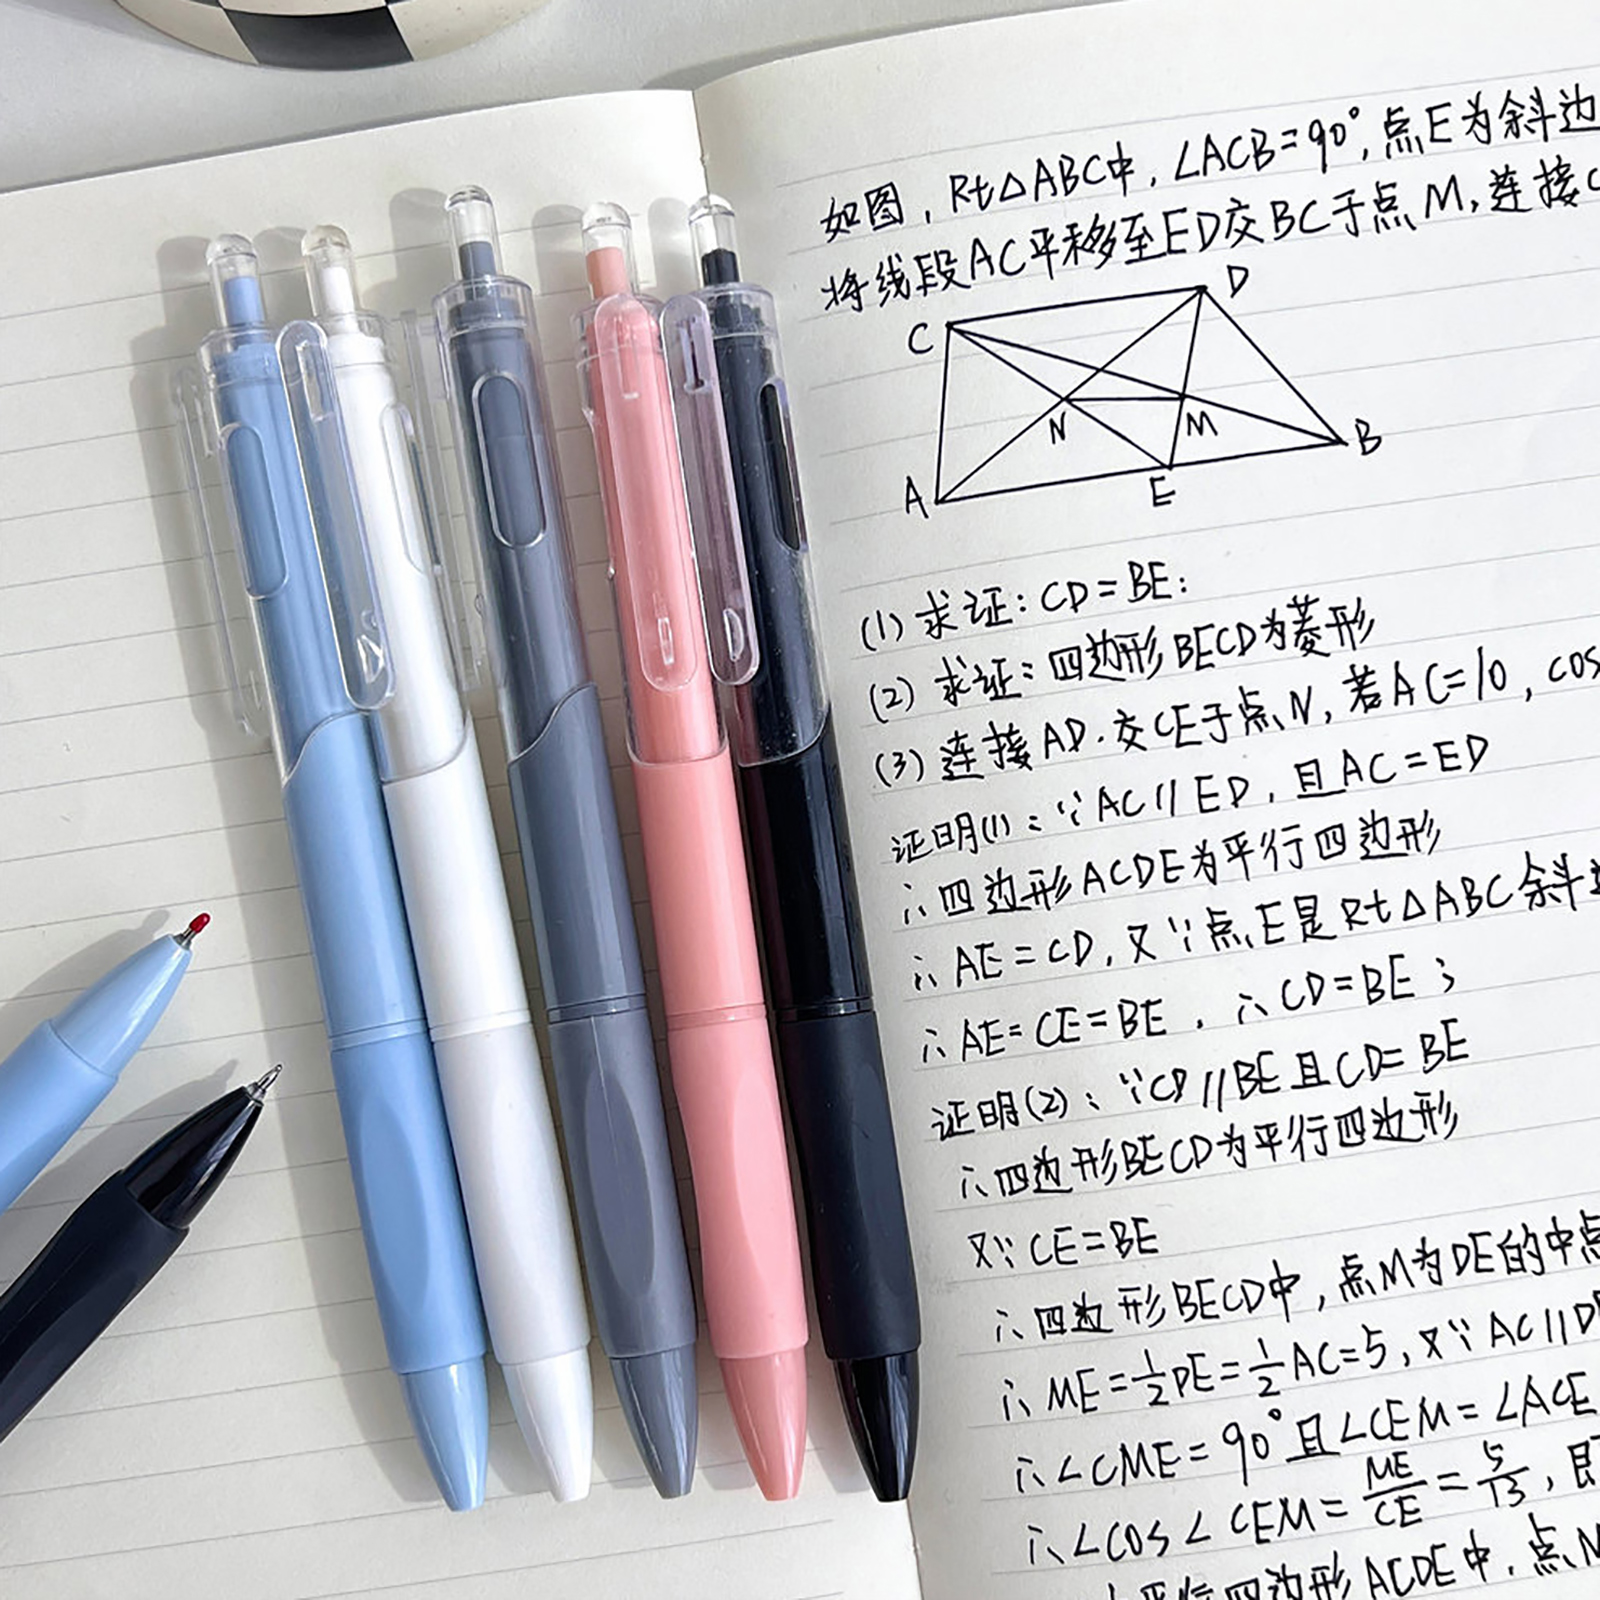 如图，Rt△ABC中，∠ACB=90°，点E为斜边
将线段AC平移至ED交BC于点M，连接C
D
C
N
M
B
A
E
(1) 求证：CD=BE：
(2) 求证：四边形BECD为菱形
(3) 连接AD.交CE于点N，若AC=10，cos
证明(1)：∵AC//ED，且AC=ED
∴四边形ACDE为平行四边形
∴AE=CD，又∵点E是Rt△ABC斜边
∴AE=CE=BE，∴CD=BE；
证明(2)：∵CD//BE且CD=BE
∴四边形BECD为平行四边形
又∵CE=BE
∴四边形BECD中，点M为DE的中点
∴ME=1/2DE=1/2AC=5，又∵AC//D
∴∠CME=90°且∠CEM=∠ACE
∴∠COS∠CEM=ME/CE=5/13，即
平行四边形ACDE中，点